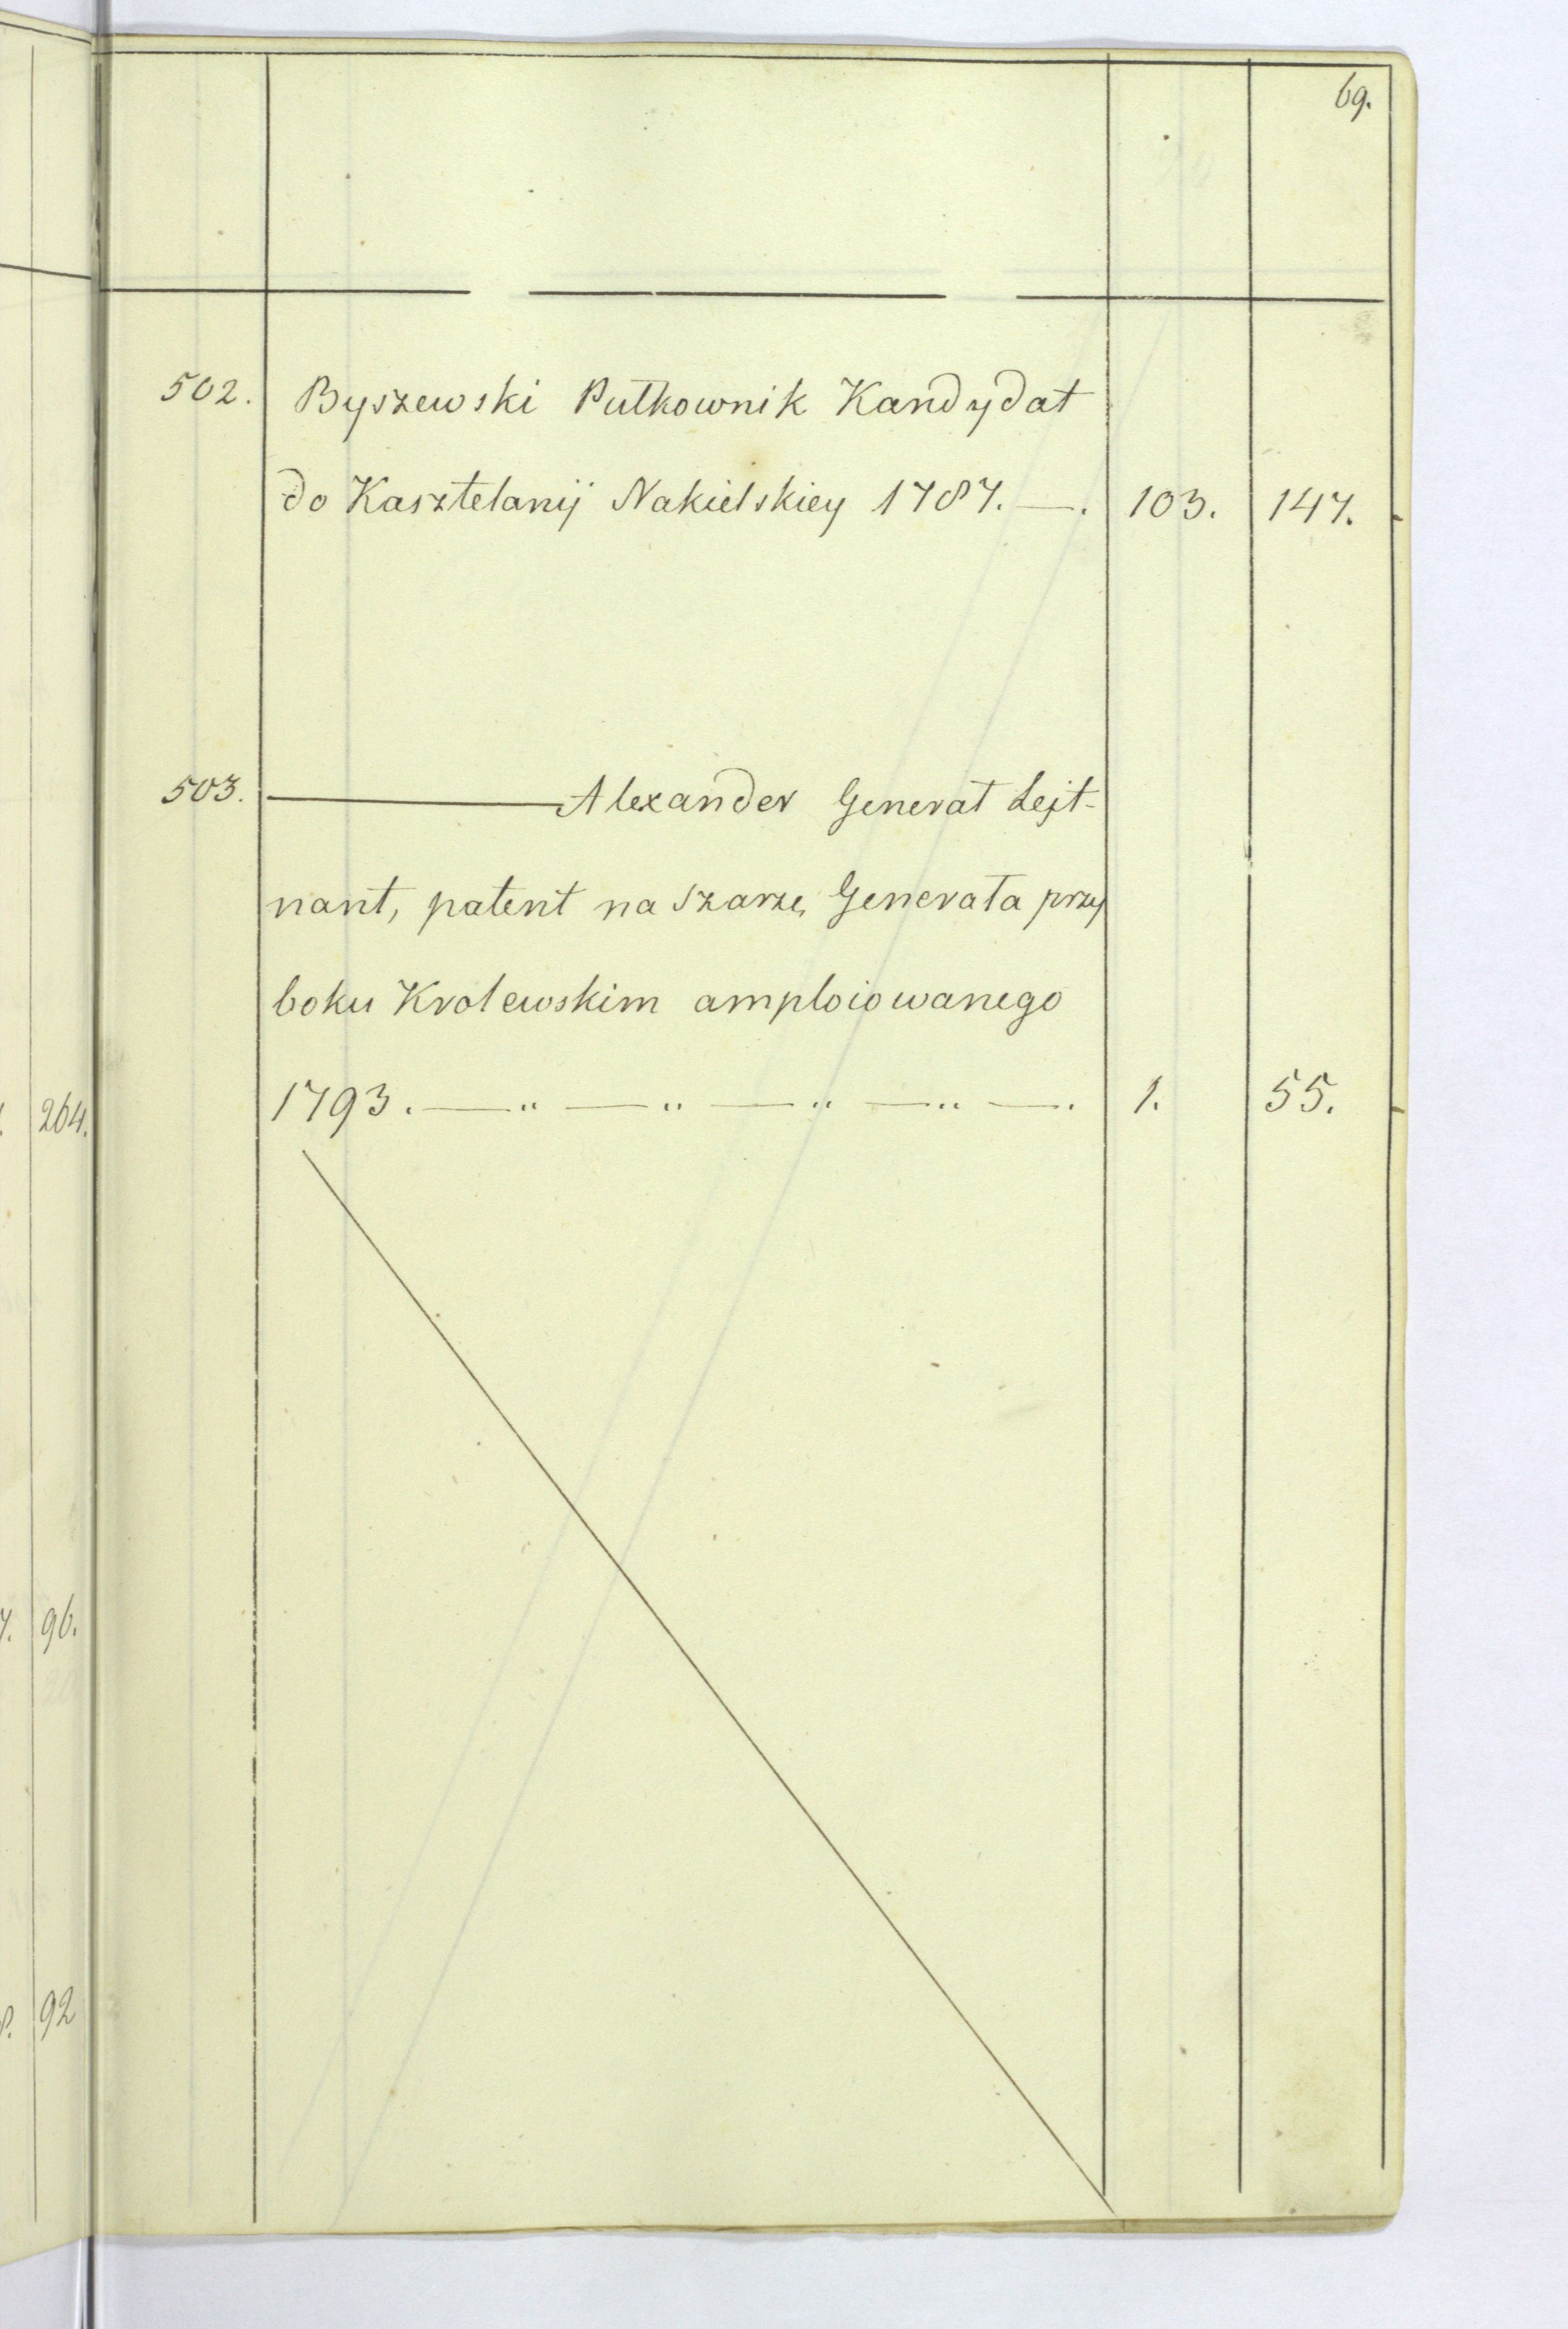 69.
502. Byszewski Pułkownik Kandydat
do Kasztelanij Nakielskiey 1787. —. 103. 147.
503. ——— Alexander Generał Lejt-
nant, patent na szarżę Generała przy
boku Krolewskim amploiowanego
1793. — " — " — " — " —. 1. 55.
264.
7. 96.
8. 92